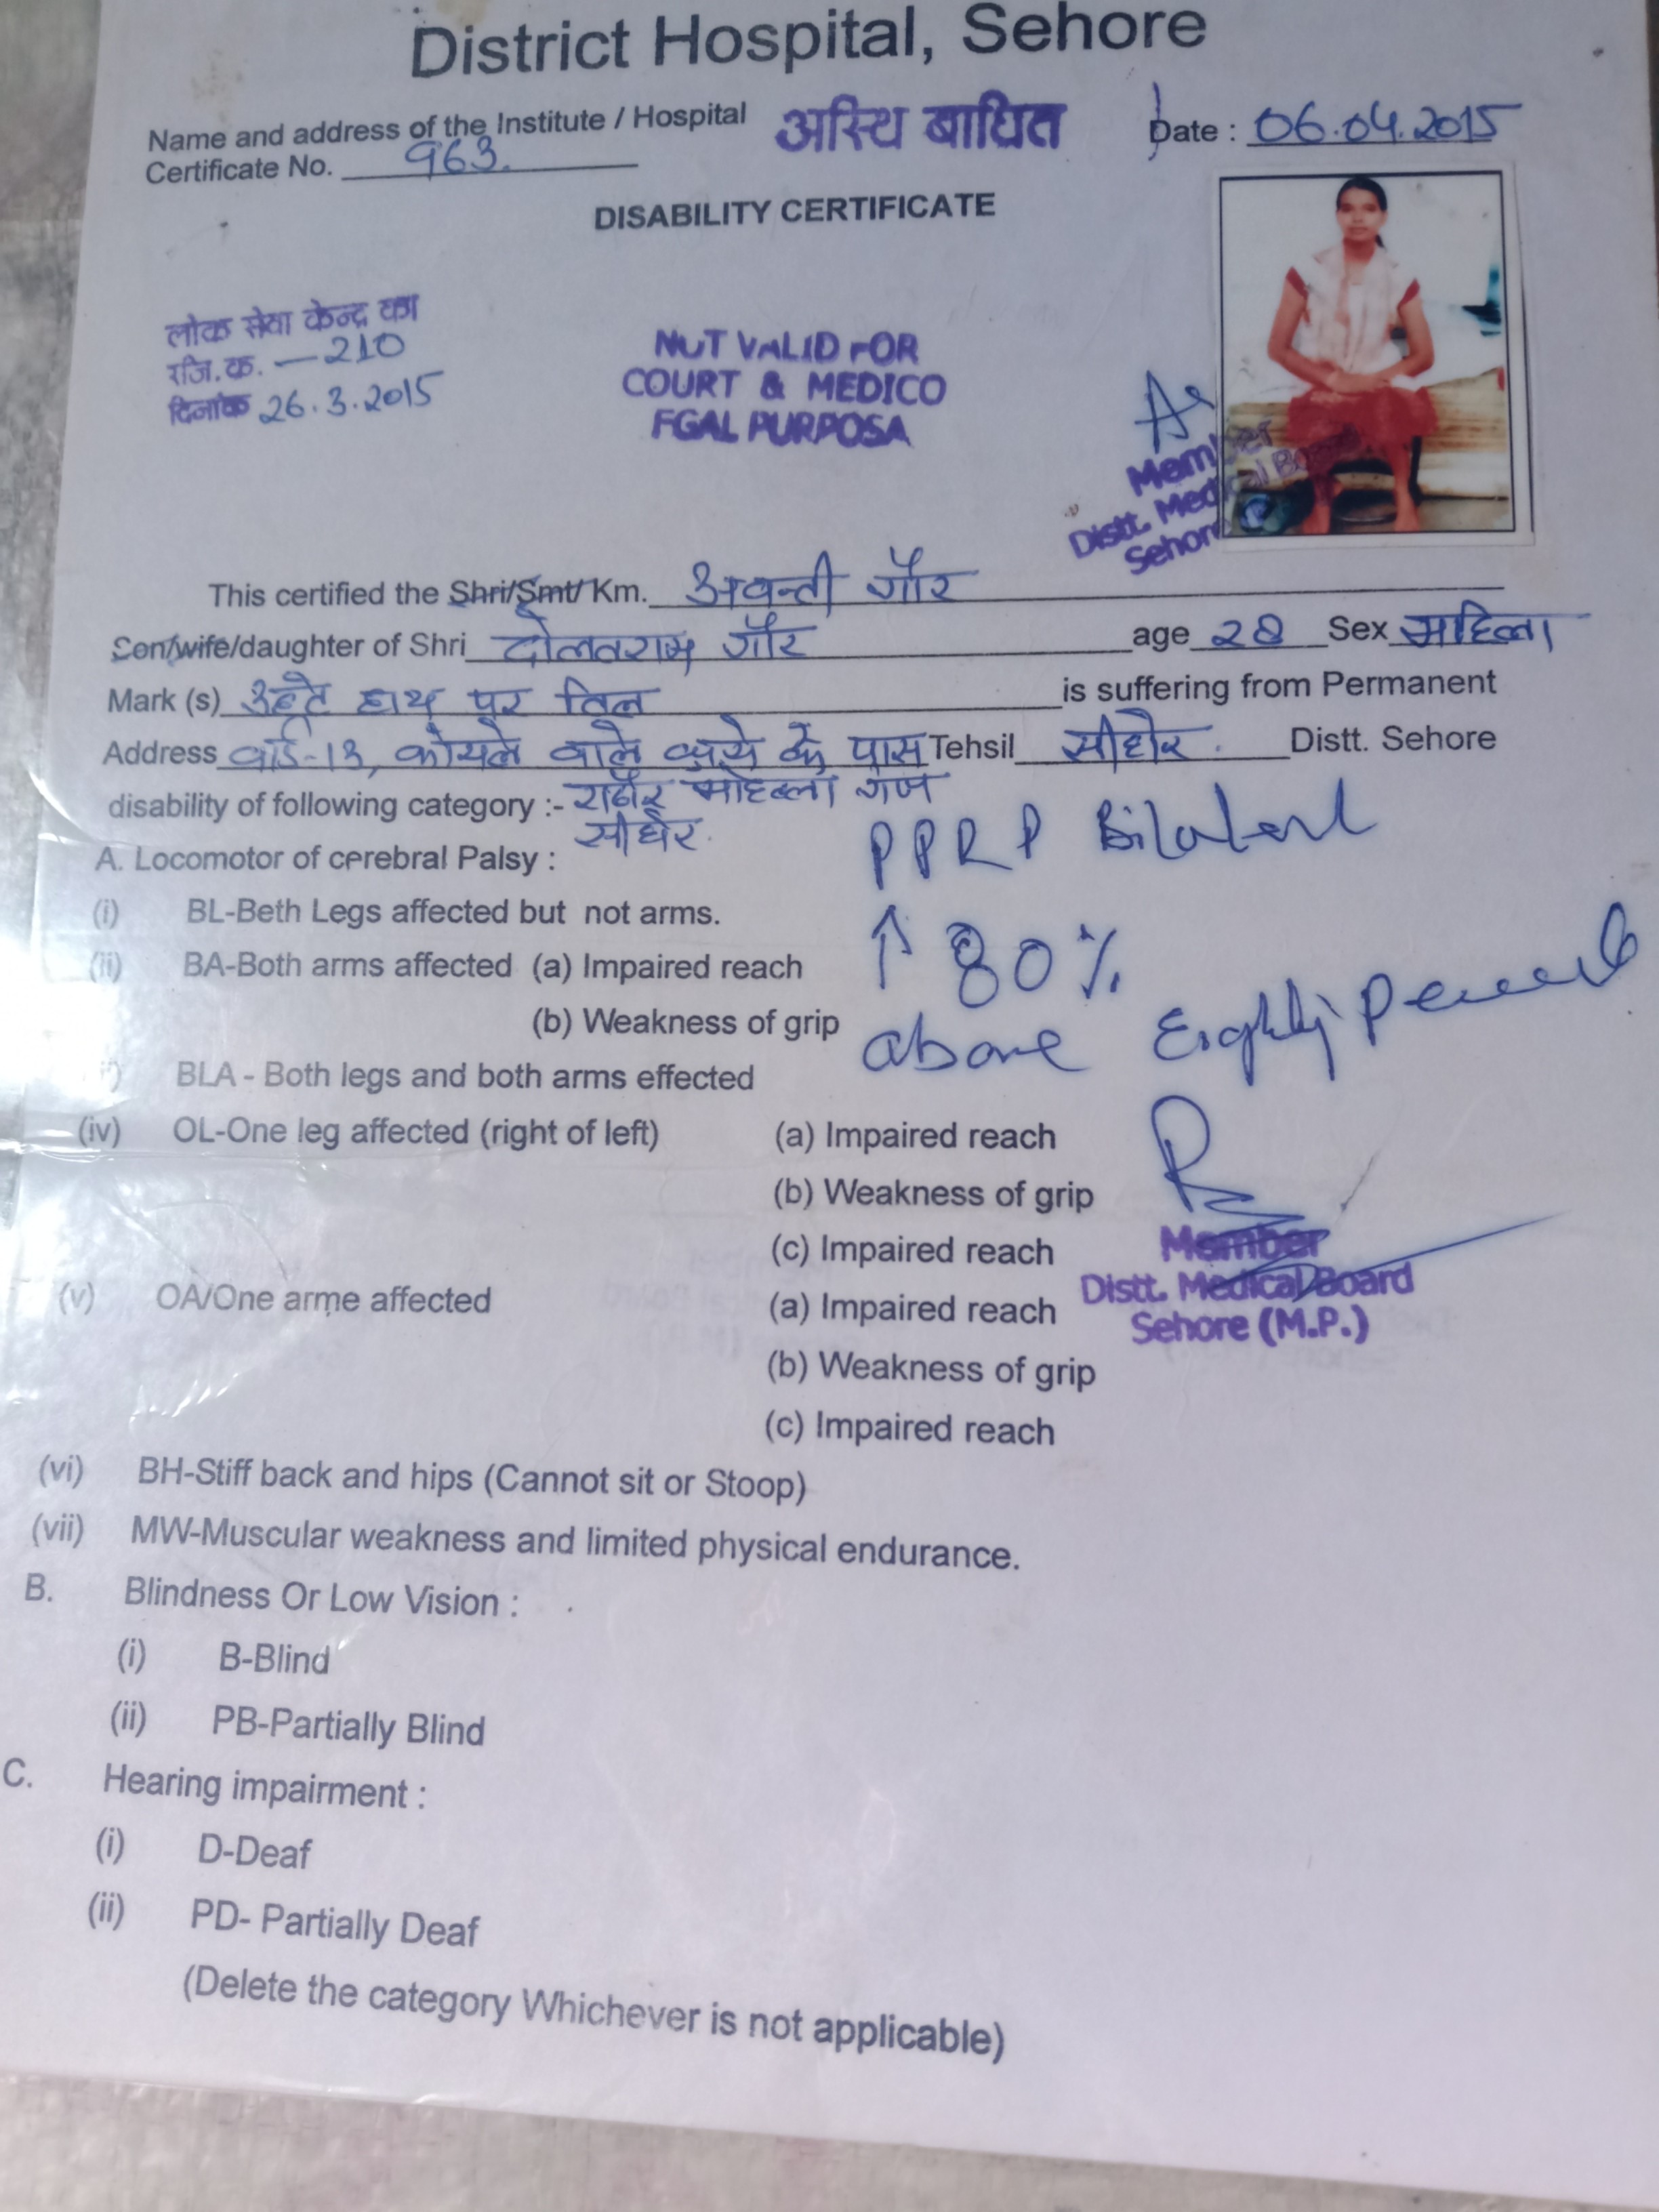 District Hospital, Sehore
Name and address of the Institute / Hospital
अस्थि बाधित
Date : 06.04.2015
Certificate No. 963.
DISABILITY CERTIFICATE
लोक सेवा केन्द्र का
रजि.क. — 210
दिनांक 26.3.2015
NOT VALID FOR
COURT & MEDICO
FGAL PURPOSA
Member
Distt. Medical Board
Sehore
This certified the Shri/Smt/ Km. अवन्ती गौर
Son/wife/daughter of Shri दोलतराम गौर age 28 Sex महिला
Mark (s) उल्टे हाथ पर तिल is suffering from Permanent
Address वार्ड-13, कोयले वाले कुये के पास Tehsil सीहोर. Distt. Sehore
disability of following category :- राठौर मोहल्ला गंज
सीहोर.
A. Locomotor of cerebral Palsy :
PPRP Bilateral
(i) BL-Beth Legs affected but not arms.
↑ 80%
(ii) BA-Both arms affected (a) Impaired reach
(b) Weakness of grip
above Eighty Percent
BLA - Both legs and both arms effected
(iv) OL-One leg affected (right of left) (a) Impaired reach
(b) Weakness of grip
(c) Impaired reach
Member
Distt. Medical Board
Sehore (M.P.)
(v) OA/One arme affected (a) Impaired reach
(b) Weakness of grip
(c) Impaired reach
(vi) BH-Stiff back and hips (Cannot sit or Stoop)
(vii) MW-Muscular weakness and limited physical endurance.
B. Blindness Or Low Vision :
(i) B-Blind
(ii) PB-Partially Blind
C. Hearing impairment :
(i) D-Deaf
(ii) PD- Partially Deaf
(Delete the category Whichever is not applicable)